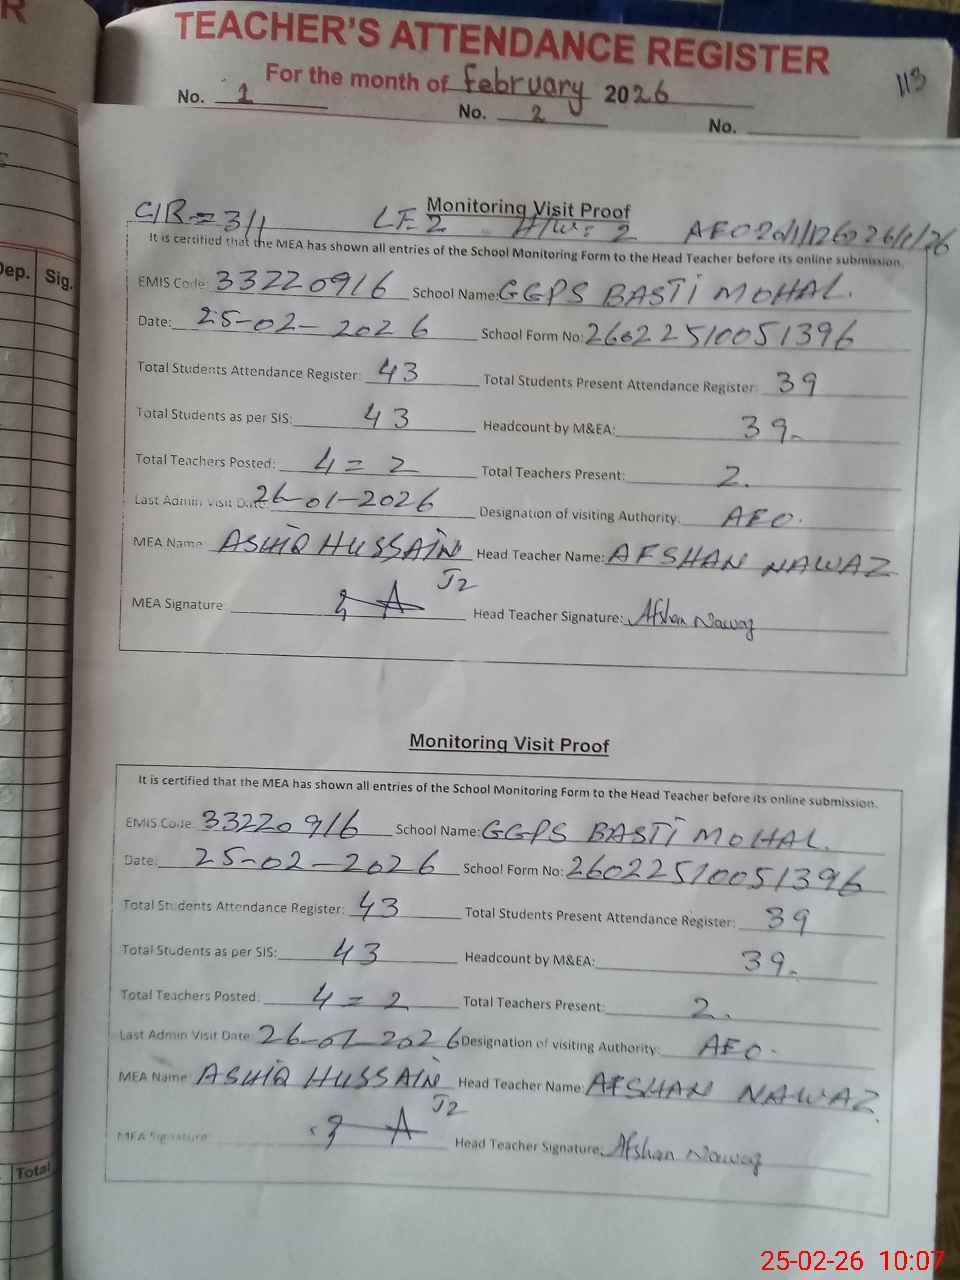 R
TEACHER'S ATTENDANCE REGISTER
For the month of February 2026
113
No. 1 No. 2 No.
Dep. Sig.
Monitoring Visit Proof
C/R = 311 LF. 2 H/W = 2 AEO 26/1/26
It is certified that the MEA has shown all entries of the School Monitoring Form to the Head Teacher before its online submission.
EMIS Code: 33220916 School Name: GGPS BASTI MOHAL.
Date: 25-02-2026 School Form No: 26022510051396
Total Students Attendance Register: 43 Total Students Present Attendance Register: 39
Total Students as per SIS: 43 Headcount by M&EA: 39.
Total Teachers Posted: 4 = 2 Total Teachers Present: 2.
Last Admin Visit Date: 26-01-2026 Designation of visiting Authority: AEO.
MEA Name ASHIQ HUSSAIN Head Teacher Name: AFSHAN NAWAZ
J2
MEA Signature Head Teacher Signature: Afshan Nawaz
Monitoring Visit Proof
It is certified that the MEA has shown all entries of the School Monitoring Form to the Head Teacher before its online submission.
EMIS Code: 33220916 School Name: GGPS BASTI MOHAL.
Date: 25-02-2026 School Form No: 26022510051396
Total Students Attendance Register: 43 Total Students Present Attendance Register: 39
Total Students as per SIS: 43 Headcount by M&EA: 39.
Total Teachers Posted: 4 = 2 Total Teachers Present: 2.
Last Admin Visit Date: 26-01-2026 Designation of visiting Authority: AEO.
MEA Name ASHIQ HUSSAIN Head Teacher Name: AFSHAN NAWAZ
J2
MEA Signature Head Teacher Signature: Afshan Nawaz
Total
25-02-26 10:07